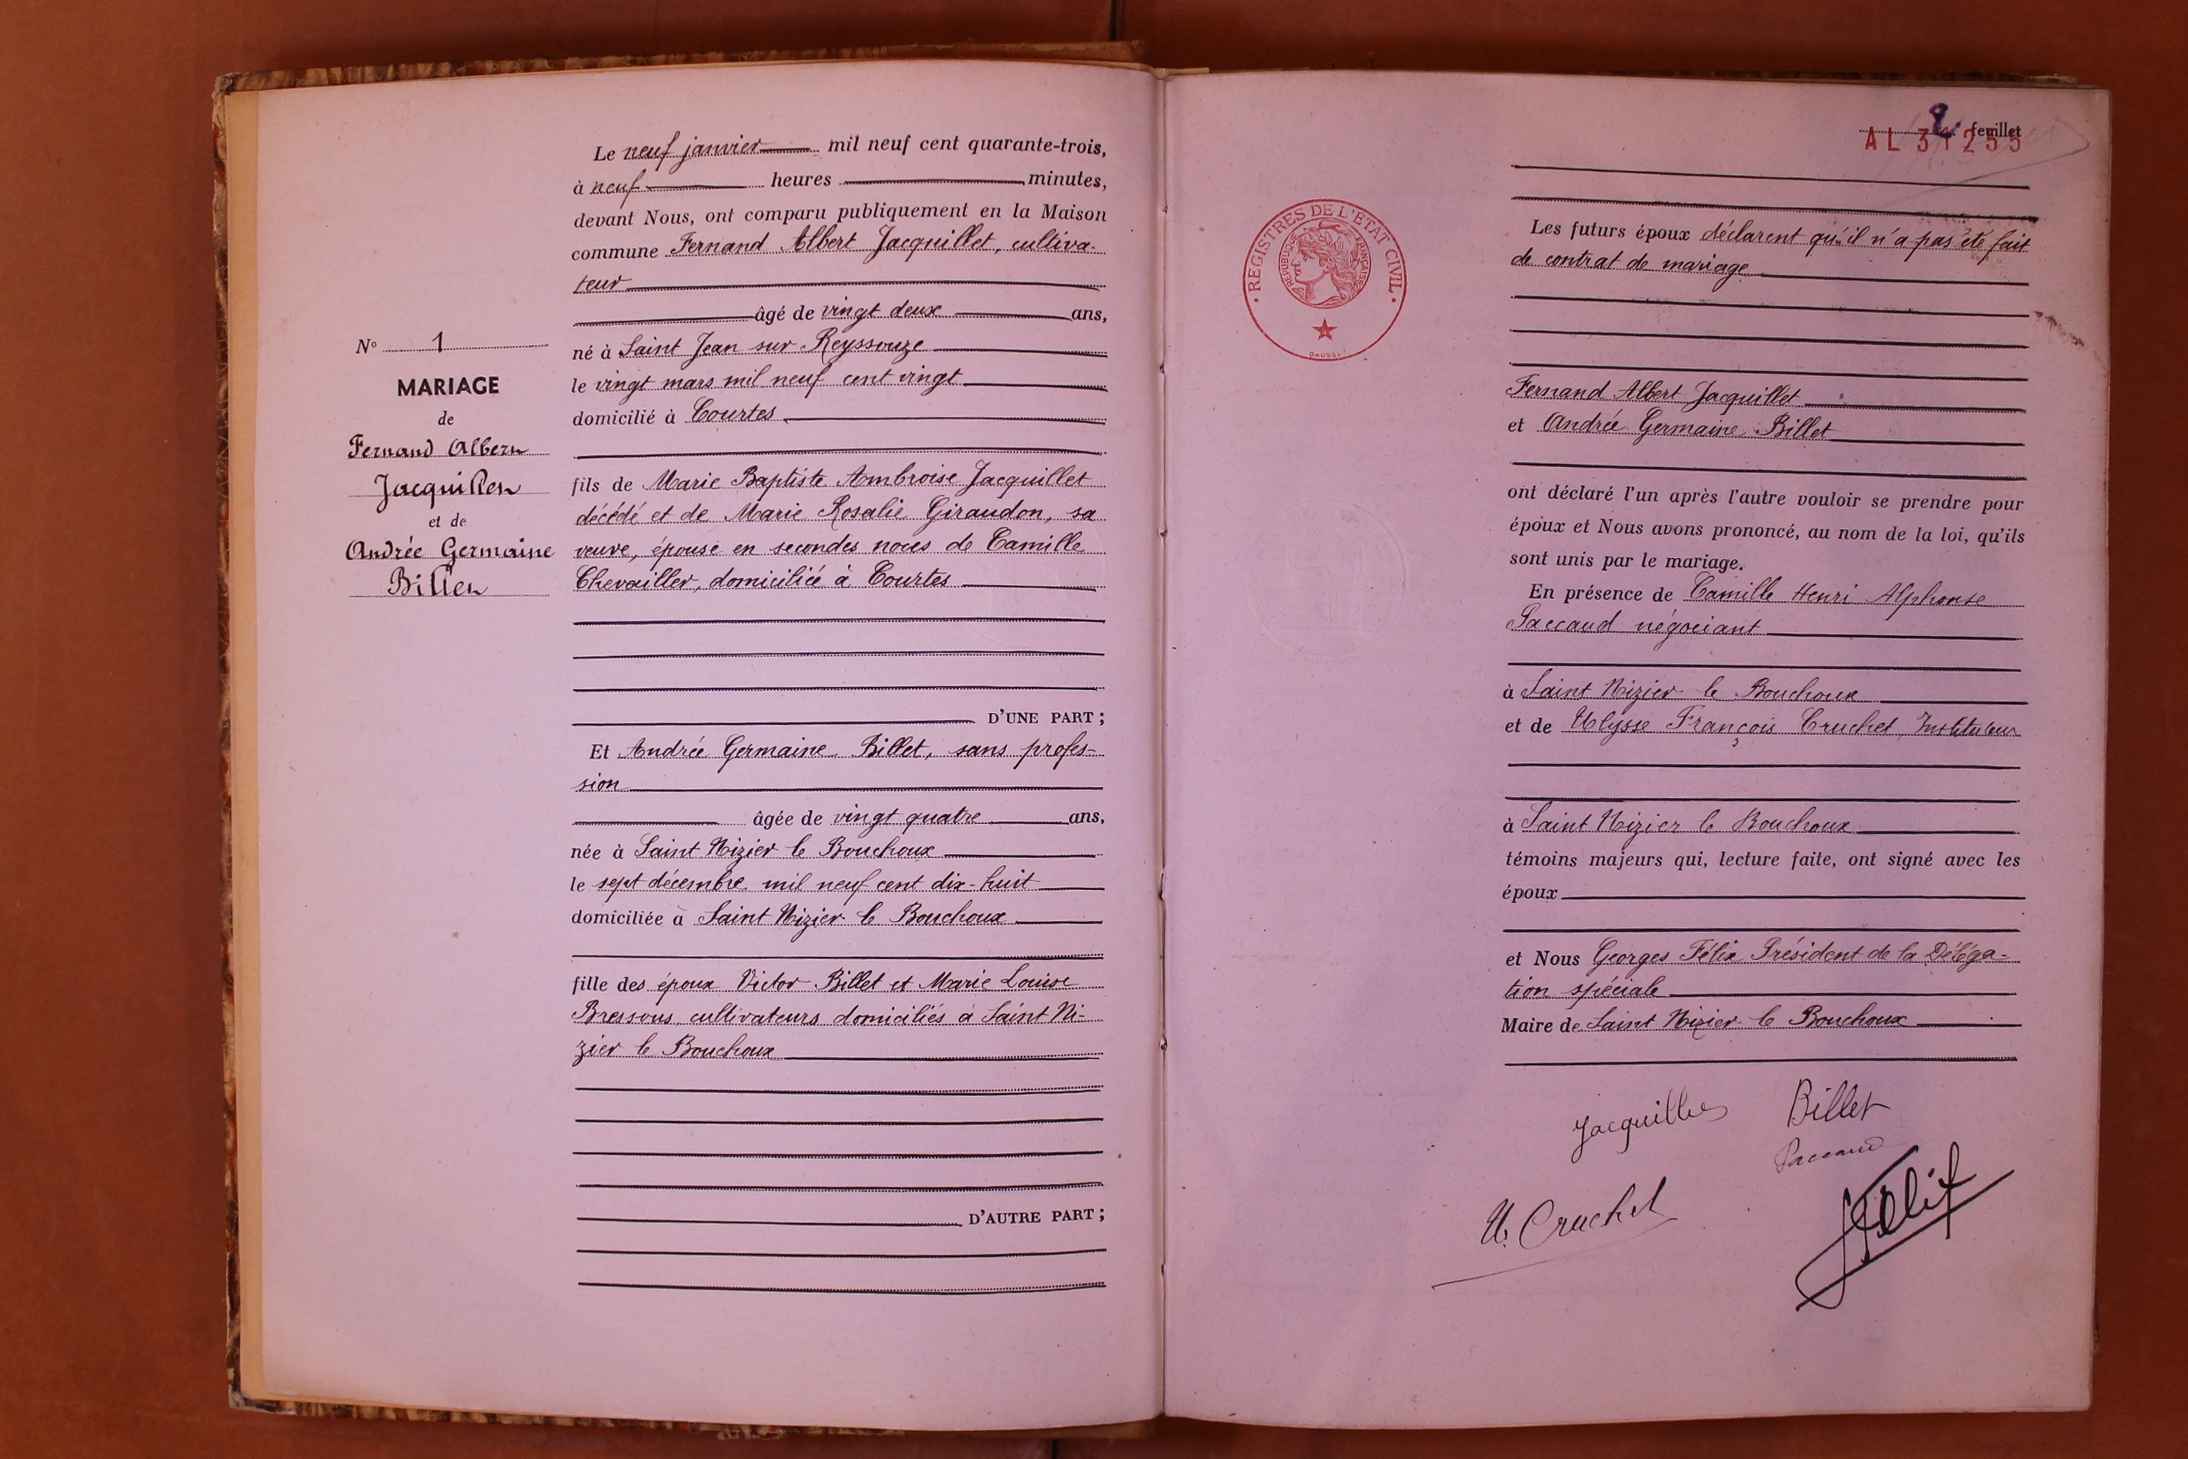 N° 1
MARIAGE
de
Fernand Albert
Jacquillet
et de
Andrée Germaine
Billet
Le neuf janvier mil neuf cent quarante-trois,
à neuf heures minutes,
devant Nous, ont comparu publiquement en la Maison
commune Fernand Albert Jacquillet, cultiva-
teur
âgé de vingt deux ans,
né à Saint Jean sur Reyssouze
le vingt mars mil neuf cent vingt
domicilié à Courtes
fils de Marie Baptiste Ambroise Jacquillet
décédé et de Marie Rosalie Giraudon, sa
veuve, épouse en secondes noces de Camille
Chevailler, domiciliée à Courtes
D'UNE PART ;
Et Andrée Germaine Billet, sans profes-
sion
âgée de vingt quatre ans,
née à Saint Nizier le Bouchoux
le sept décembre mil neuf cent dix-huit
domiciliée à Saint Nizier le Bouchoux
fille des époux Victor Billet et Marie Louise
Bressous, cultivateurs domiciliés à Saint Ni-
zier le Bouchoux
D'AUTRE PART ;
2 feuillet
AL 31255
REGISTRES DE L'ETAT CIVIL
REPUBLIQUE FRANÇAISE
Les futurs époux déclarent qu'il n'a pas été fait
de contrat de mariage
Fernand Albert Jacquillet
et Andrée Germaine Billet
ont déclaré l'un après l'autre vouloir se prendre pour
époux et Nous avons prononcé, au nom de la loi, qu'ils
sont unis par le mariage.
En présence de Camille Henri Alphonse
Paccaud négociant
à Saint Nizier le Bouchoux
et de Ulysse François Cruchet, Instituteur
à Saint Nizier le Bouchoux
témoins majeurs qui, lecture faite, ont signé avec les
époux
et Nous Georges Félix Président de la Déléga-
tion spéciale
Maire de Saint Nizier le Bouchoux
Jacquillet Billet
Paccaud
U. Cruchet
Félix